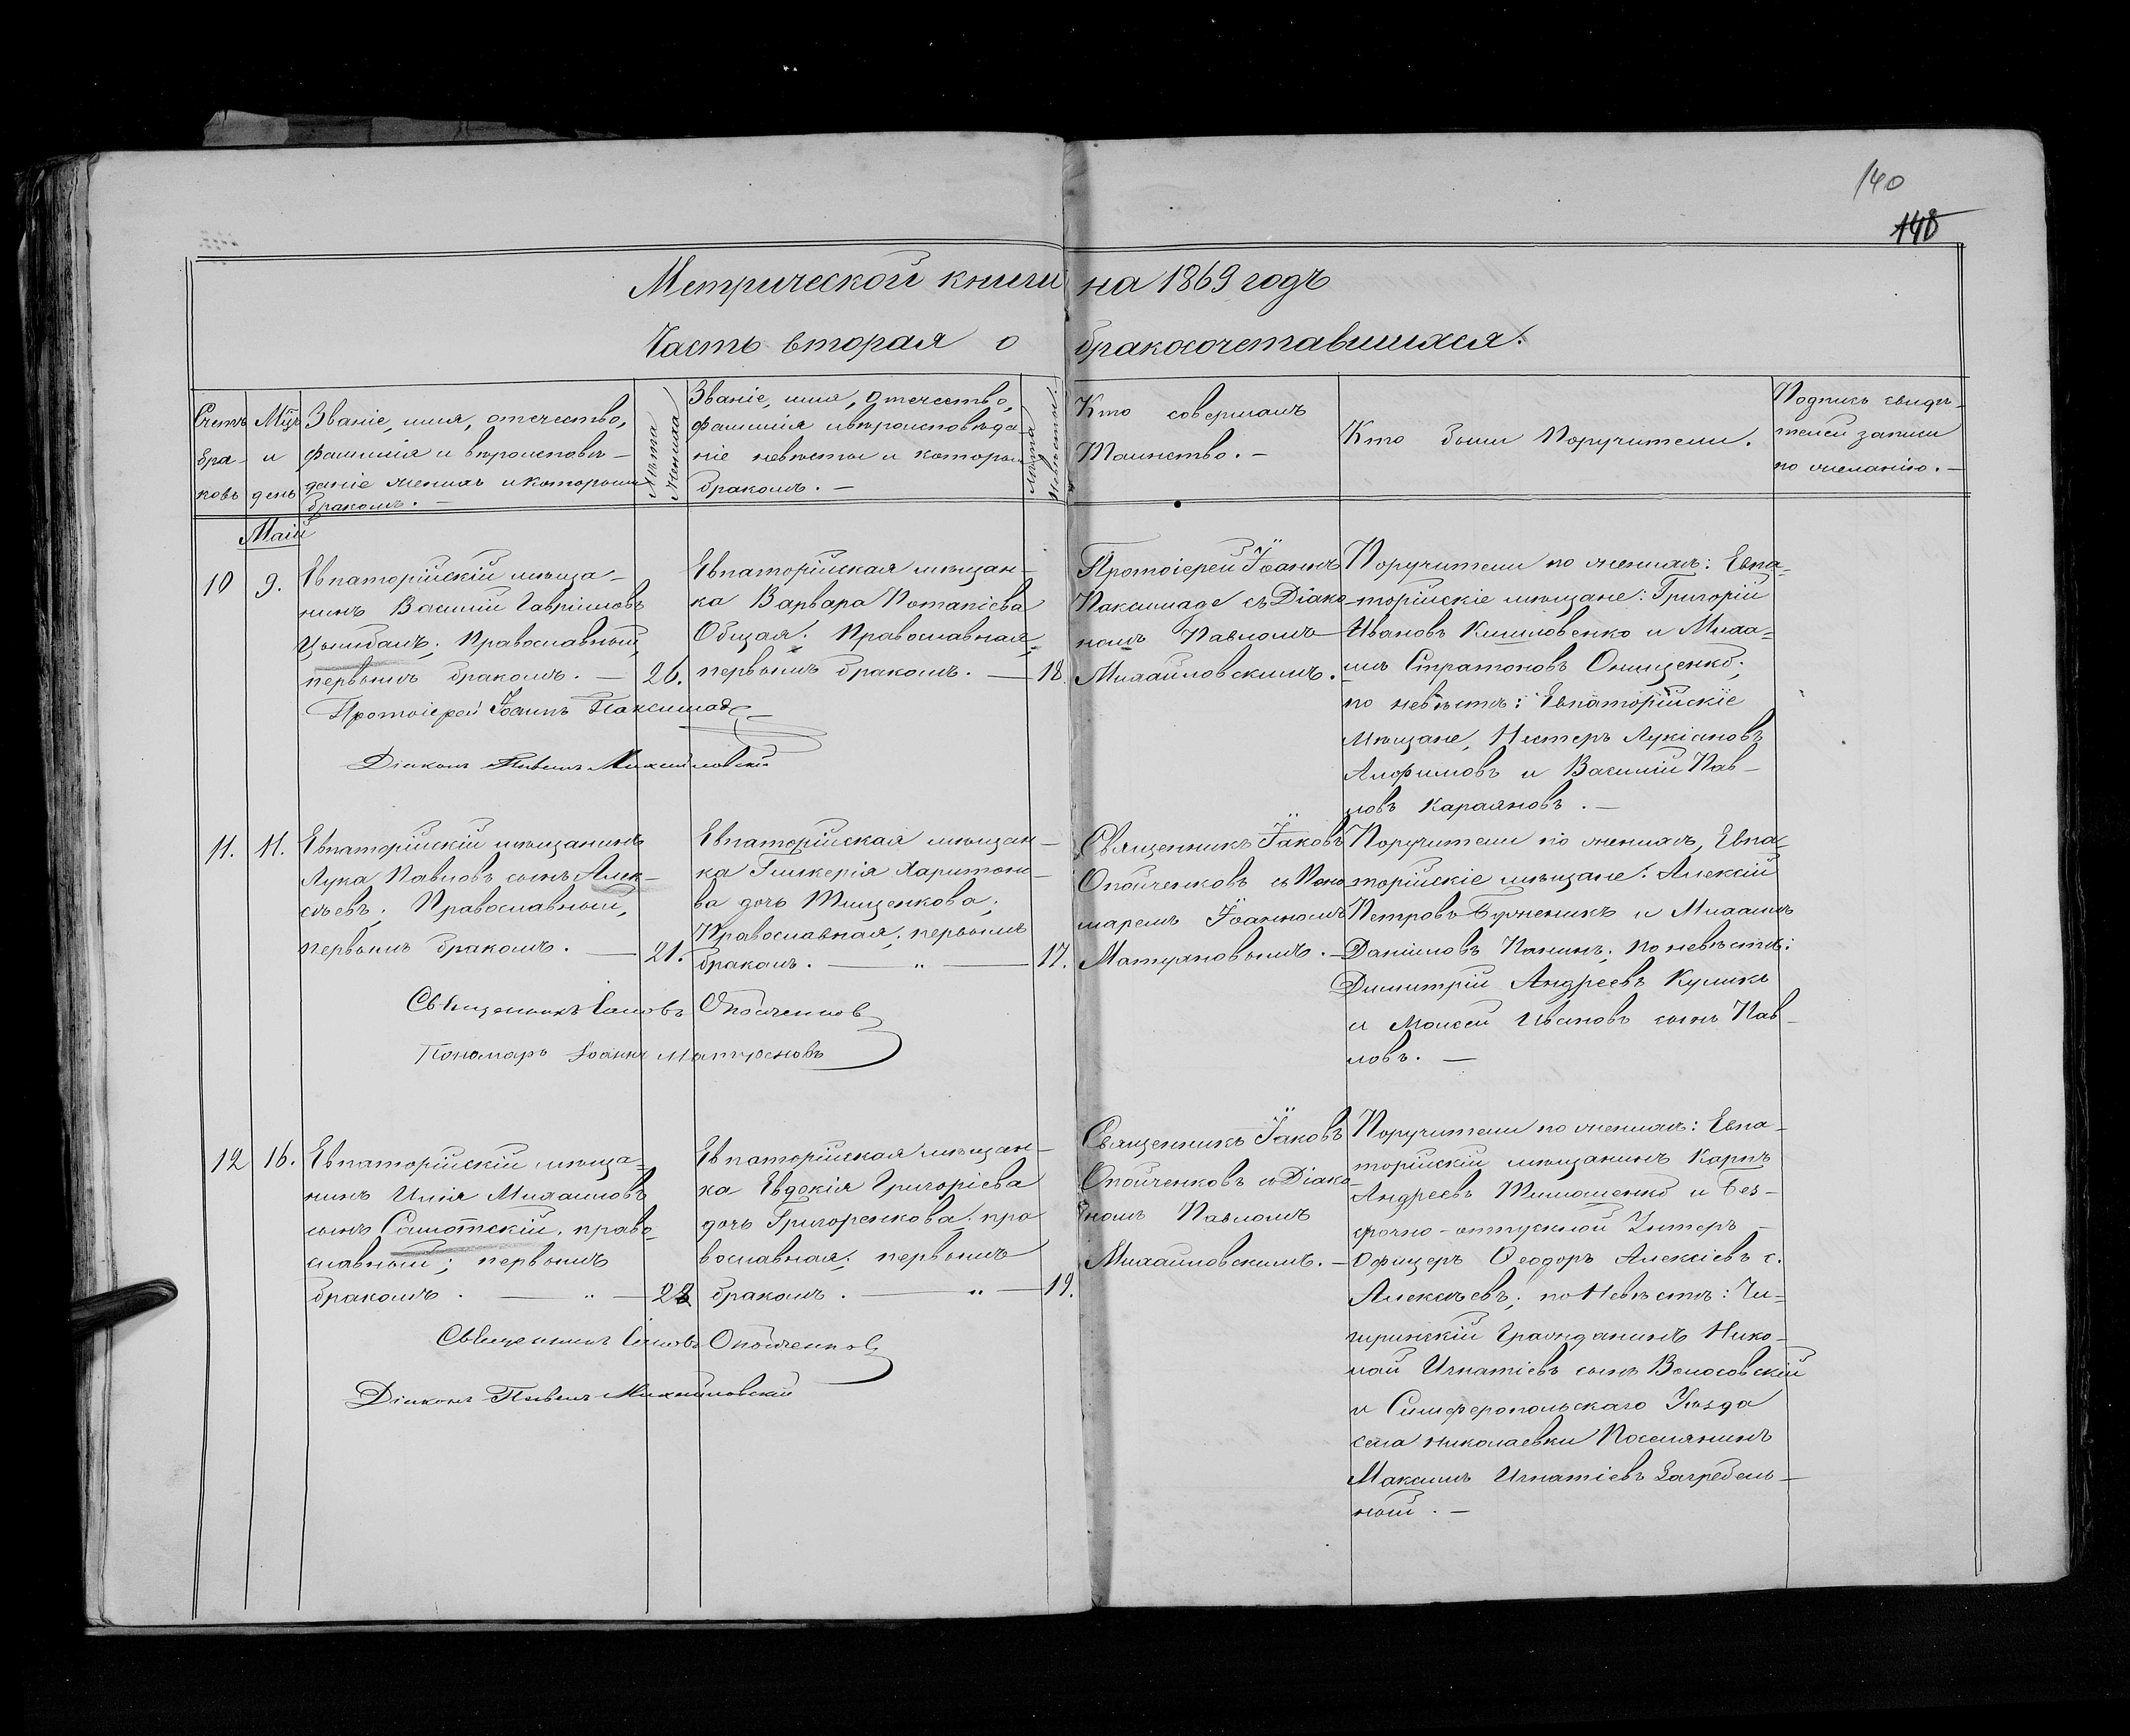 140
148
Метрической книги на 1869 годъ
Часть вторая о бракосочетавшихся.
Счетъ бра- ковъ
Мцъ и день
Званіе, имя, отечество,
фамилія и вѣроисповѣ-
даніе жениха и которымъ
бракомъ. —
Лѣта жениха
Званіе, имя, отечество,
фамилія и вѣроисповѣда-
ніе невѣсты и которым
бракомъ. —
Лѣта невѣсты
Кто совершалъ
Таинство. —
Кто были Поручители.
Подпись свидѣ-
телей записи
по желанію. —
Маій
10
9.
Евпаторійскій мѣща-
нинъ Василій Гавріиловъ
Цымбалъ; Православный,
первымъ бракомъ. —
26.
Евпаторійская мѣщан-
ка Варвара Потапіева
Общая; Православная,
первымъ бракомъ. —
18.
Протоіерей Іоаннъ
Паксимаде съ Діако-
номъ Павломъ
Михайловскимъ.
Поручители по женихѣ: Евпа-
торійскіе мѣщане: Григорій
Ивановъ Кишловенко и Миха-
илъ Стратоновъ Онищенко;
по невѣстѣ: Евпаторійскіе
Мѣщане, Нестеръ Лукіановъ
Алфимовъ и Василій Пав-
ловъ Караяновъ. —
Протоіерей Іоаннъ Паксимаде
Діаконъ Павелъ Михайловскій
11.
11.
Евпаторійскій мѣщанинъ
Лука Павловъ сынъ Алек-
сѣевъ; Православный,
первымъ бракомъ. —
21.
Евпаторійская мѣщан-
ка Гликерія Харитоно-
ва дочь Тищенкова;
Православная; первымъ
бракомъ. — „ —
17.
Священникъ Іаковъ
Опойченковъ съ Поно-
маремъ Іоанномъ
Матуяновымъ. —
Поручители по женихѣ, Евпа-
торійскіе мѣщане: Алексій
Петровъ Бурженикъ и Михаилъ
Даніиловъ Панинъ; по невѣстѣ:
Димитрій Андреевъ Куликъ
и Моисей Ивановъ сынъ Пав-
ловъ. —
Священникъ Іаковъ Опойченковъ
Пономарь Іоаннъ
12
16.
Евпаторійскій мѣща-
нинъ Илія Михаиловъ
сынъ Самотскій, право-
славный; первымъ
бракомъ. — „ —
Евпаторійская мѣщан-
ка Евдокія Григоріева
дочь Григоренкова; пра
вославная; первымъ
бракомъ. — „ —
19.
Священникъ Іаковъ
Опойченковъ съ Діако-
номъ Павломъ
Михайловскимъ. —
Поручители по женихѣ: Евпа-
торійскій мѣщанинъ Карпъ
Андреевъ Тимошенко и без-
срочно-отпускной Унтеръ-
Офицеръ Феодоръ Алексіевъ с.
Алексѣевъ; по Невѣстѣ: Чи-
гиринскій Гражданинъ Нико-
лай Игнатіевъ сынъ Волосовскій
и Симферопольскаго Уѣзда
села Николаевки Поселянинъ
Максимъ Игнатіевъ Загребель-
ный. —
Священникъ Іаковъ Опойченковъ
Діаконъ Павелъ Михайловскій